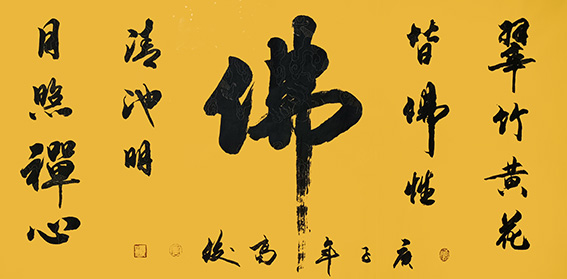 翠竹黄花
皆佛性
佛
清池明
月照禪心
庚子年高